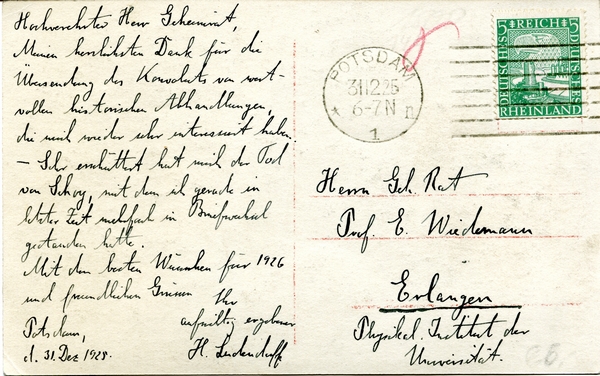 Hochverehrter Herr Geheimrat,
Meinen herzlichsten Dank für die
Übersendung des Konvoluts von wert-
vollen historischen Abhandlungen,
die mich wieder sehr interessiert haben.
— Sehr erschüttert hat mich der Tod
von Schoy, mit dem ich gerade in
letzter Zeit mehrfach in Briefwechsel
gestanden hatte.
Mit den besten Wünschen für 1926
und freundlichen Grüssen
Ihr
aufrichtig ergebener
H. Ludendorff
Potsdam,
d. 31. Dez 1925.
POTSDAM
31.12.25
6-7 N
* 1 n
DEUTSCHES REICH
5 5
RHEINLAND
Herrn Geh. Rat
Prof. E. Wiedemann
Erlangen
Physikal. Institut der
Universität.